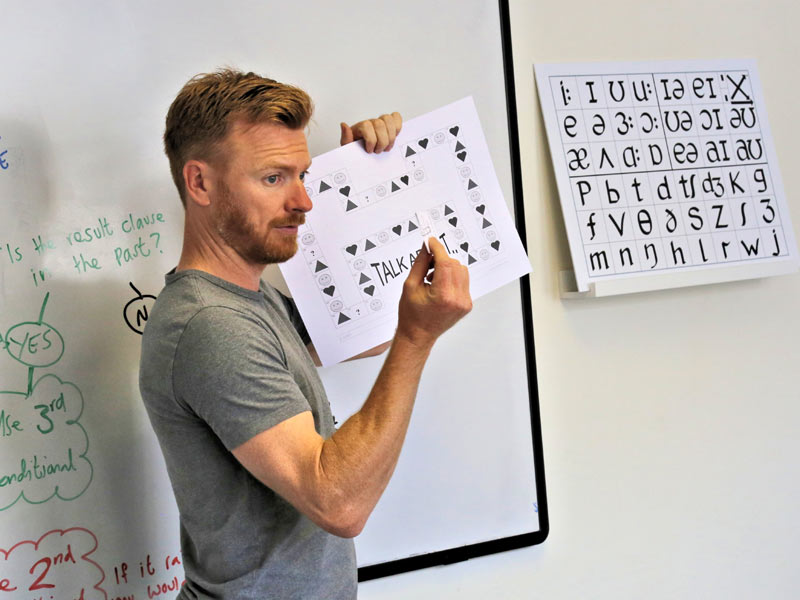 Is the result clause
in the past?
YES
3rd
conditional
2nd
If it
N
TALK
?
iː ɪ ʊ uː ɪə eɪ
e ə ɜː ɔː ʊə ɔɪ əʊ
æ ʌ ɑː ɒ eə aɪ aʊ
p b t d tʃ dʒ k g
f v θ ð s z ʃ ʒ
m n ŋ h l r w j